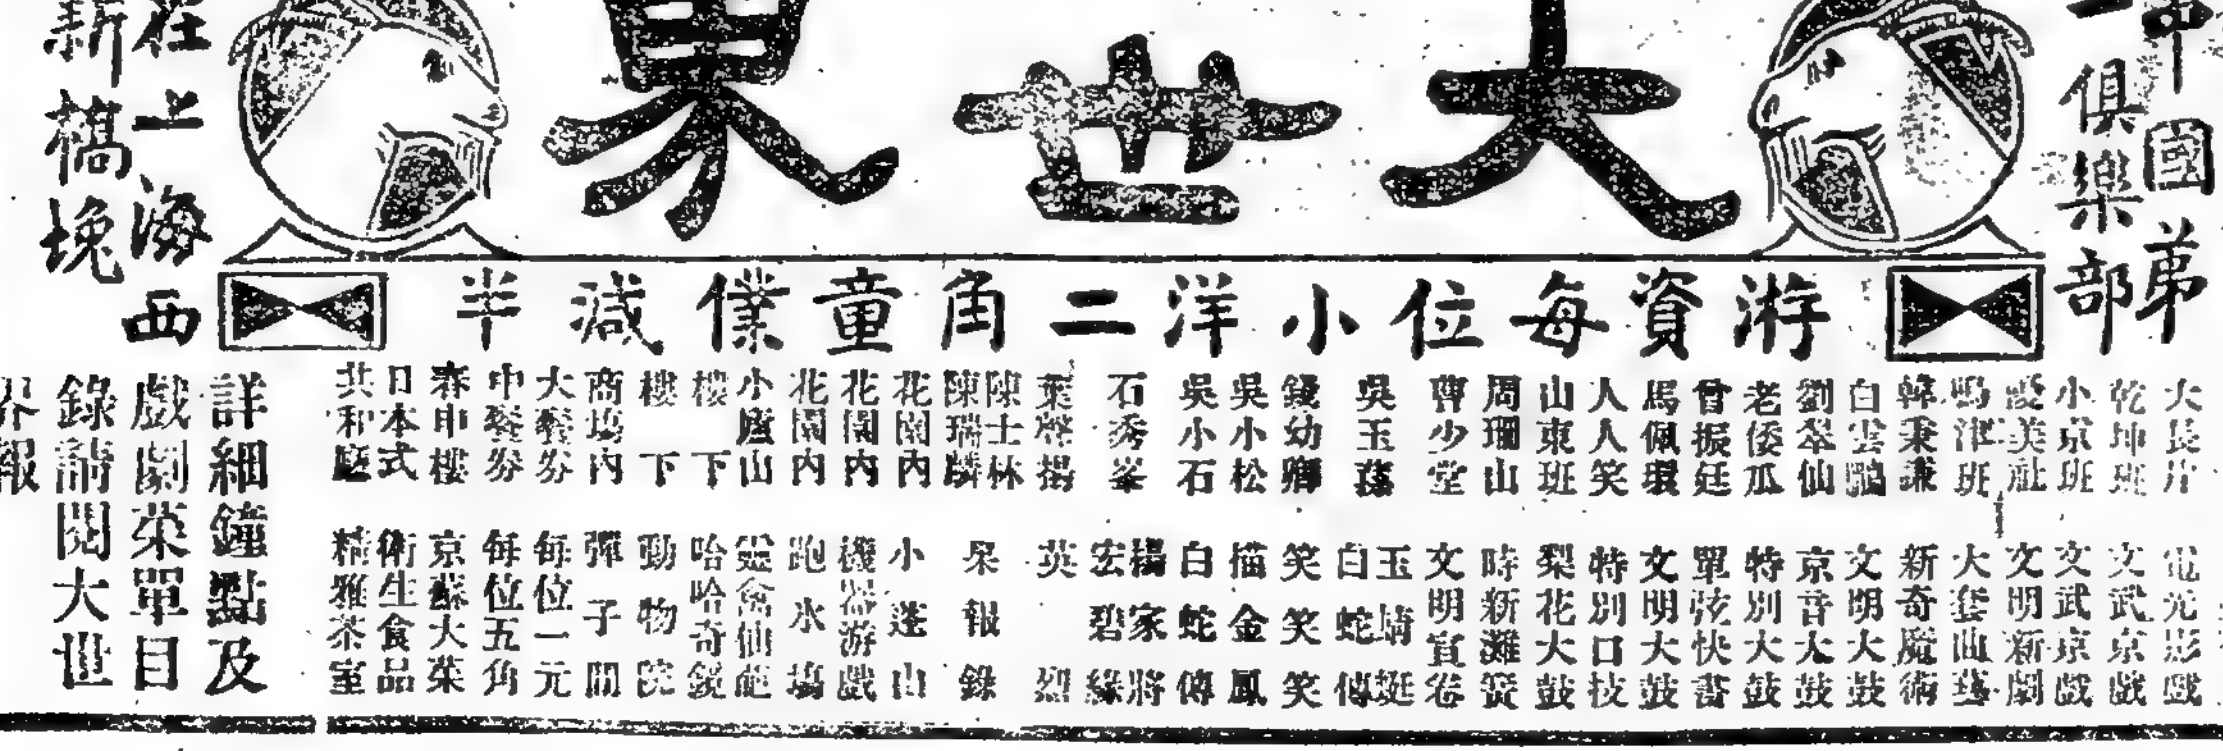 中國苐
一俱樂部
大世界
在上海西
新橋堍
游資每位小洋二角童僕減半
大長片 電光影戲
乾坤班 文武京戲
小京班 文武京戲
優美社 文明新劇
鳴津班 大套曲藝
韓秉謙 新奇魔術
白雲鵬 文明大鼓
劉翠仙 京音大鼓
老倭瓜 特別大鼓
曾振廷 單弦快書
馬佩環 文明大鼓
人人笑 特別口技
山東班 梨花大鼓
周珊山 時新灘簧
曹少堂 文明宣卷
吳玉蓀 玉蜻蜓 白蛇傳
錢幼卿 笑笑笑
吳小松 描金鳳
吳小石 白蛇傳
石秀峯 楊家將 宏碧緣
葉聲揚 英烈
陳士林 陳瑞麟 果報錄
花園內 小蓬山
花園內 機器游戲
花園內 跑水塲
小廬山 靈禽仙葩
樓下 哈哈奇鏡
樓下 動物院
商塲內 彈子間
大餐券 每位一元
中餐券 每位五角
春申樓 京蘇大菜
日本式 衛生食品
共和廳 精雅茶室
詳細鐘點及
戲劇菜單目
錄請閱大世
界報